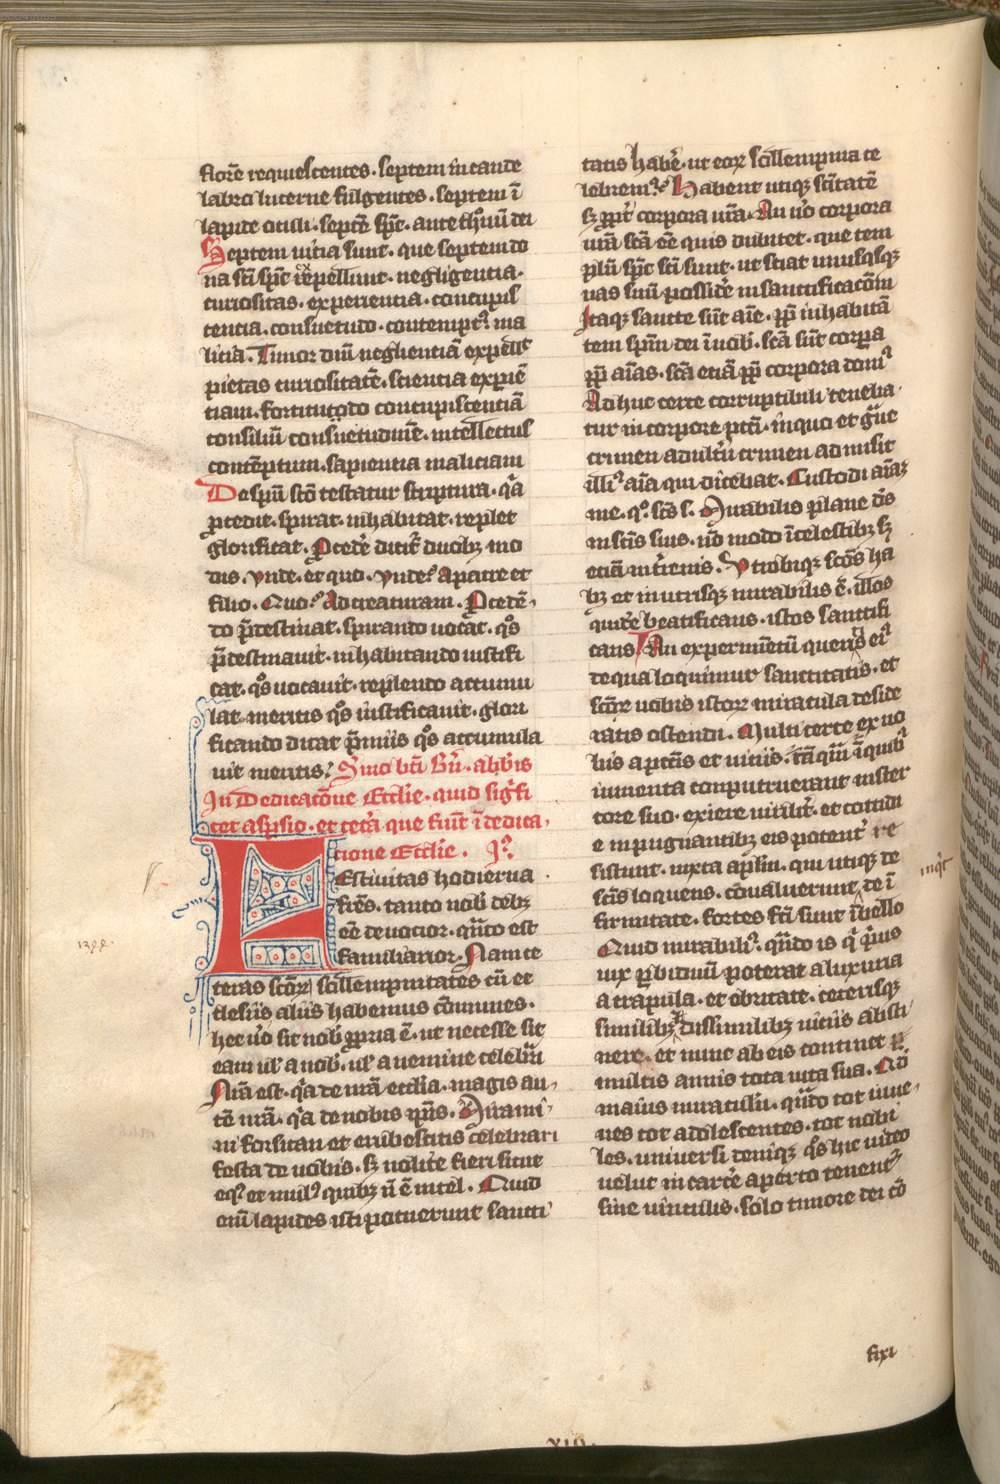 flore requiescentes. septem in cande
labro lucerne fulgentes. septem ī
lapide oculi. septē spūs. ante thronū dei
Septem uitia sunt. que septem do
na sc̄i spūs repellunt. negligentia.
curiositas. experientia. concupis
centia. consuetudo. contemptꝰ. ma
litia. Timor dn̄i negligentiā expellit
pietas curiositatē. scientia experiē
tiam. fortitudo concupiscentiā
consiliū consuetudinē. intellectus
contēptum. sapientia maliciam
De spū sc̄o testatur scriptura. qa
procedit. spirat. inhabitat. replet
glorificat. Procedere dicitur duobꝫ mo
dis. vnde. et quo. vnde? a patre et
filio. Quo? Ad creaturam. Procedē
do p̄destinat. spirando uocat. q̄s
p̄destinauit. inhabitando iustifi
cat. q̄s uocauit. replendo accumu
lat meritis q̄s iustificauit. glori
ficando ditat p̄miis q̄s accumula
uit meritis. Sermo bt̄i b'n. abb̄is
In Dedicacōne Eccl'ie. quid sig'fi
cet asp'sio. et cetera que fiūt ī dedica
tione Eccl'ie. Iꝰ.
Festiuitas hodierna
fr̄es. tanto nob' debꝫ
eē deuotior. qn̄to est
familiarior. Nam ce
teras sc̄oꝝ sollempnitates cū ec
clesiis aliis habemus cōmunes.
hec uō sic nob' ꝓpria ē. ut necesse sit
eam ul' a nob'. ul' a nemine celebrari
Nr̄a est. qa de nr̄a eccl'ia. magis au
tē nr̄a. qa de nobis ip̄is. Mirami
ni forsitan et erubescitis celebrari
festa de uobis. sꝫ nolite fieri sicut
eqꝰ et mulꝰ quibꝫ n̄ ē intel. Quid
enī lapides isti potuerunt sancti
tatis habere. ut eoꝝ sollempnia ce
lebremꝰ? Habent utiqꝫ sc̄itatē
sꝫ ꝓpt' corpora ur̄a. An uō corpora
ur̄a sc̄a eē quis dubitet. que tem
plū spūs sc̄i sunt. ut sciat unusqsqꝫ
uas suū possidere in sanctificacōm
Itaqꝫ sancte sūt aīe. ꝓp̄ inhabitā
tem spm̄ dei ī uob'. sc̄a sūt corpora
ꝓp̄ aīas. sc̄a etiā ꝓp̄ corpora domꝰ
Adhuc certe corruptibili teneba
tur in corpore pcc̄i. in quo et graue
crimen adulterii crimen admisit
illiꝰ aīa qui dicebat. Custodi aīaꝫ
me. qꝰ sc̄s s. Mirabilis plane dꝰs
in sc̄is suis. nō modo ī celestibꝫ sꝫ
etiā in t'renis. Vtrobiqꝫ sc̄os ha
bꝫ et in utrisqꝫ mirabilis ē. illos
quidē beatificans. istos sanctifi
cans. An experimētū queris eiꝰ
de qua loquimur sanctitatis. et
sc̄oꝝ uobis istoꝝ miracula deside
ratis ostendi. Multi certe ex uo
bis a pcc̄is et uitiis
iumenta computruerant in ster
core suo. exiere uirilit'. et cottidi
e inpugnantibꝫ eis potent' re
sistunt. iuxta ap'lm. qui utiqꝫ de
sc̄is loquens. cōualuerunt de ī
firmitate. fortes fc̄i sunt ī bello
Quid mirabiliꝰ. qn̄do is q̄ p̄us
uix p biduū poterat a luxuria
a crapula. et ebrietate. ceterisqꝫ
similibꝫ dissimilibꝫ uitiis absti
nere. et nunc ab eis continet p
multis annis tota uita sua. Qd
maius miraculū. qn̄do tot iuue
nes tot adolescentes. tot nobi
les. uniuersi deniqꝫ q̄s hic uideo
uelut in carcere aperto tenent'
sine uinculis. solo timore dei cō
inq't
1388.
fixi
xiii.